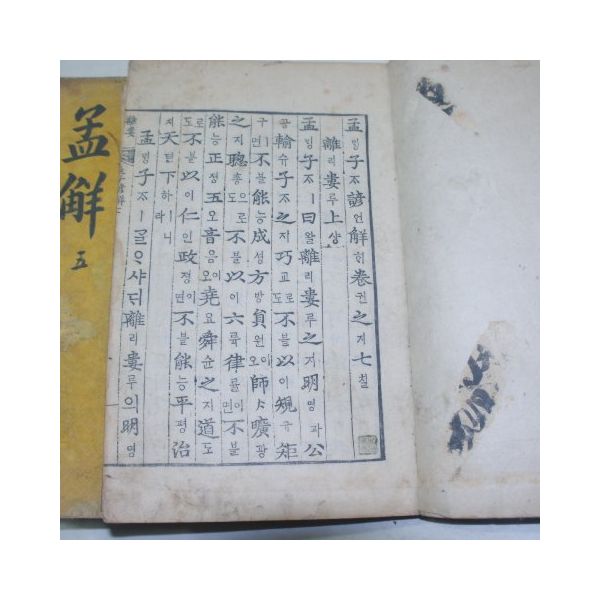 孟밍子ᄌᆞ諺언解ᄒᆡ卷권之지七칠
離리婁루上샹
孟밍子ᄌᆞㅣ曰왈離리婁루之지明명과公
공輸슈子ᄌᆞ之지巧교로도不블以이規규矩
구ㅣ면不블能능成셩方방員원이오師ᄉᆞ曠광
之지聰총으로도不블以이六륙律률이면不블
能능正졍五오音음이오堯요舜슌之지道도
로도不블以이仁인政졍이면不블能능平평治
티天텬下하ㅣ니라
孟밍子ᄌᆞㅣᄀᆞᆯᄋᆞ샤ᄃᆡ離리婁루의明명
孟解
五